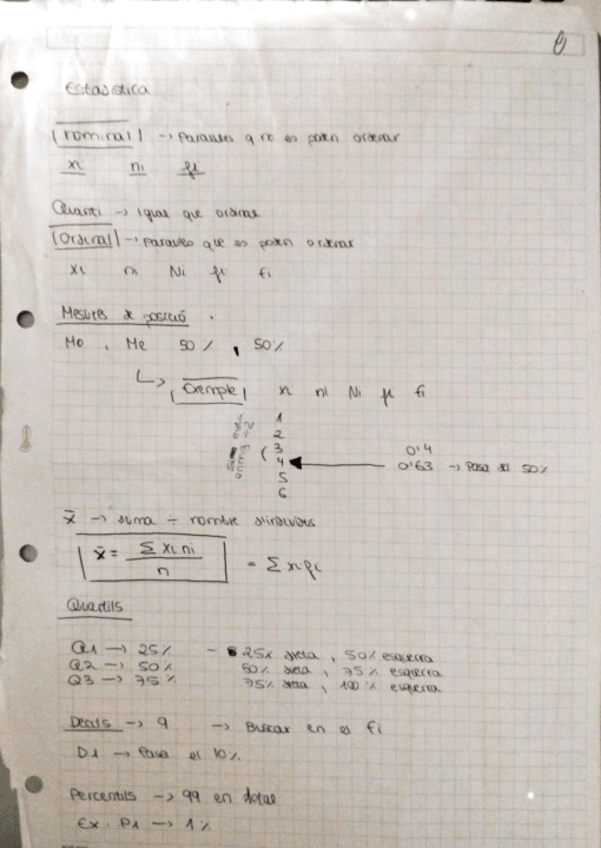 Estadistica
nominal -> Paraules q no es poden ordenar
xi ni fi
Quanti -> Igual que ordinal
Ordinal -> paraules que es poden ordenar
xi ni Ni fi Fi
Mesures de posició
Mo, Me 50% , 50%
Exemple xi ni Ni fi Fi
1
2
3 0'4
4 0'63 -> Pasa del 50%
5
6
x̄ -> suma ÷ nombre d'individus
x̄ = Σ xi ni / n = Σ xi fi
Quartils
Q1 -> 25% - 25% dreta, 50% esquerra
Q2 -> 50% 50% dreta, 75% esquerra
Q3 -> 75% 75% dreta, 100% esquerra
Decils -> 9 -> Buscar en el Fi
D1 -> Pasa el 10%
Percentils -> 99 en total
Ex: P1 -> 1%